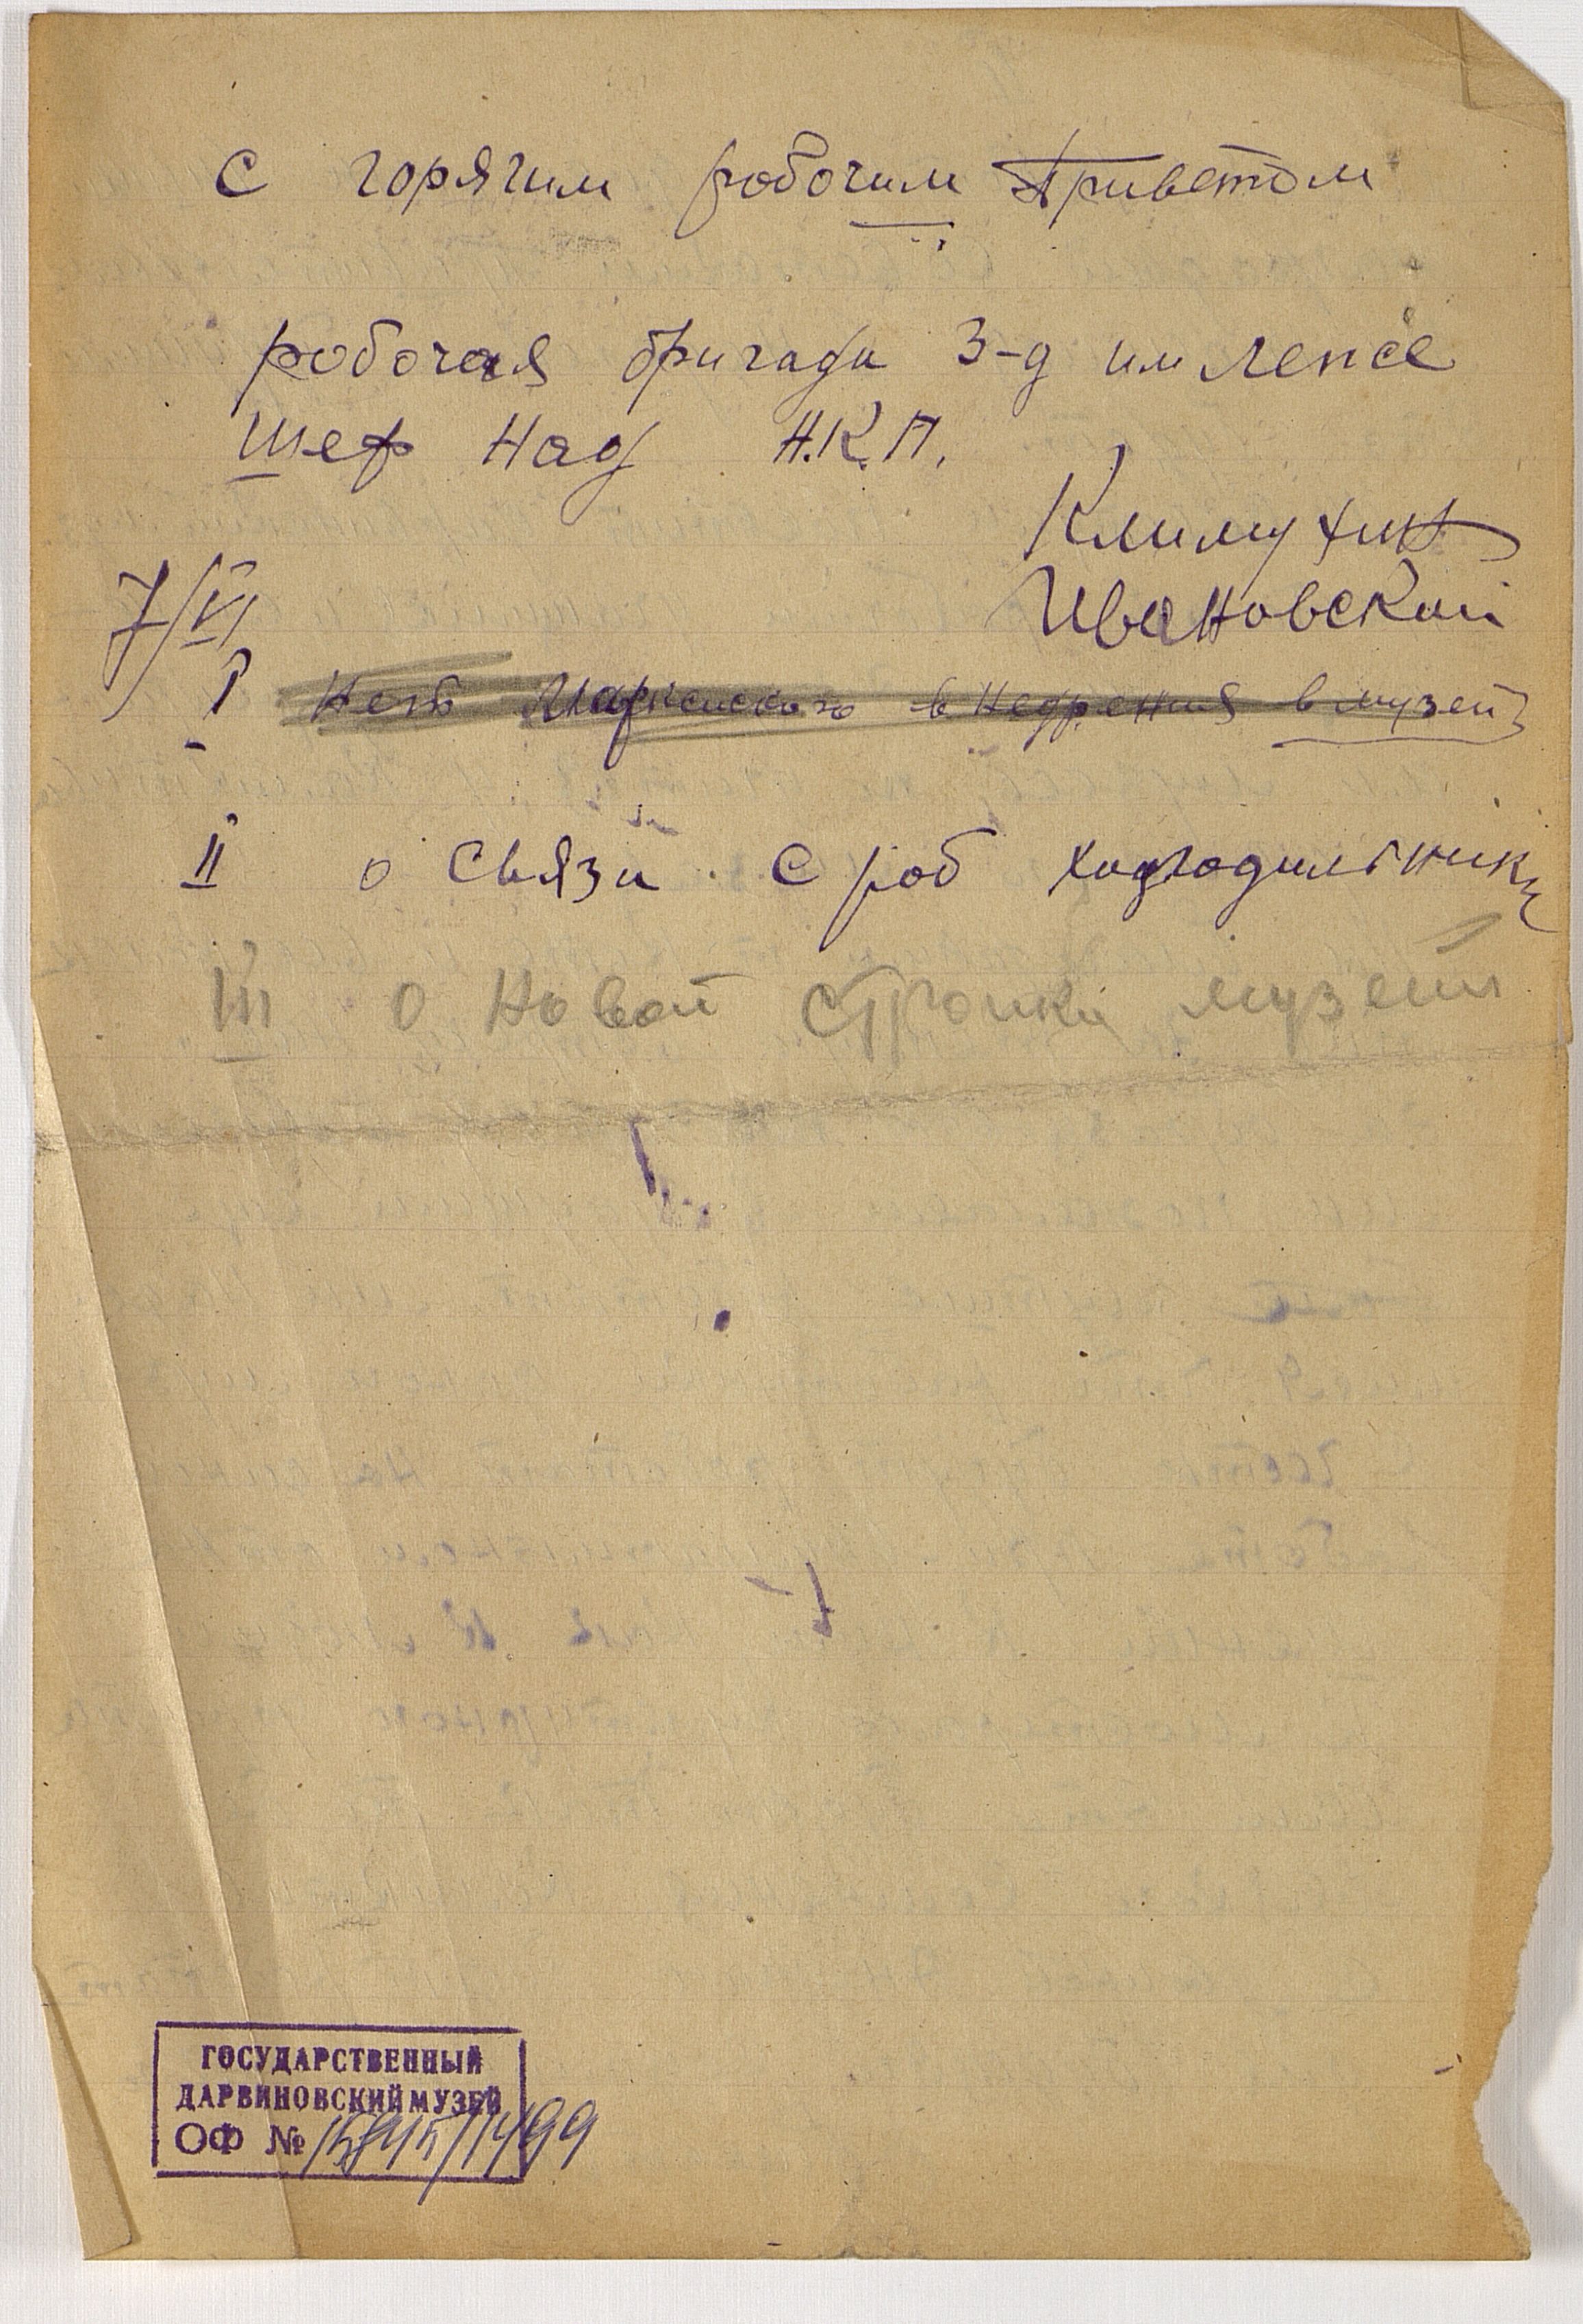 с горячим робочим Приветом
робочая бригада З-д им лепсе
Шеф Над Н.К.П.
Климухин
Ивановский
7/VI
I Нет Марксиского в Недрения в музей
II о Связи с роб
III о Новой стройки музеи
ГОСУДАРСТВЕННЫЙ
ДАРВИНОВСКИЙ МУЗЕЙ
ОФ № 15945/1499